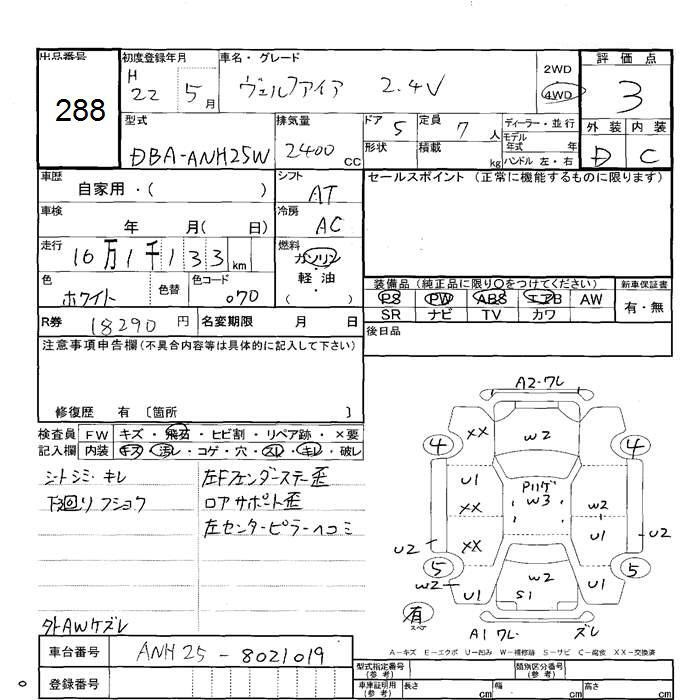 出品番号 初度登録年月 車名・グレード 評価点
288
H 22 5月
ヴェルファイア 2.4V
2WD
4WD
3
型式 排気量 ドア 5 定員 7人 ディーラー・並行 外装 内装
DBA-ANH25W 2400cc
形状 積載 kg モデル年式 年
ハンドル 左・右
D C
車歴 自家用・( ) シフト AT
セールスポイント (正常に機能するものに限ります)
車検 年 月( 日) 冷房 AC
走行 16万1千133km 燃料 ガソリン・軽油( )
色 ホワイト 色替 色コード 070
装備品 (純正品に限り○をつけてください) 新車保証書
PS PW ABS エアB AW 有・無
SR ナビ TV カワ
R券 18290円 名変期限 月 日
後日品
注意事項申告欄(不具合内容等は具体的に記入して下さい)
修復歴 有 〔箇所 〕
検査員 FW キズ・飛石・ヒビ割・リペア跡・×要
記入欄 内装 キズ・汚レ・コゲ・穴・スレ・キレ・破レ
シートシミ・キレ
下回リフショク
左Fフェンダーステー歪
ロアサポート歪
左センターピラーヘコミ
外AWケズレ
A2・ワレ
XX W2
4 4
U1 W3 W2
XX
XX U1
U2 U2
5 5
W2 U1 W2 S1 U1
有
A1ワレ U2
A-キズ E-エクボ U-凹み W-補修跡 S-サビ C-腐食 XX-交換済
車台番号 ANH25-8021019
登録番号
型式指定番号(参考) 類別区分番号(参考)
車庫証明用(参考) 長さ cm 幅 cm 高さ cm